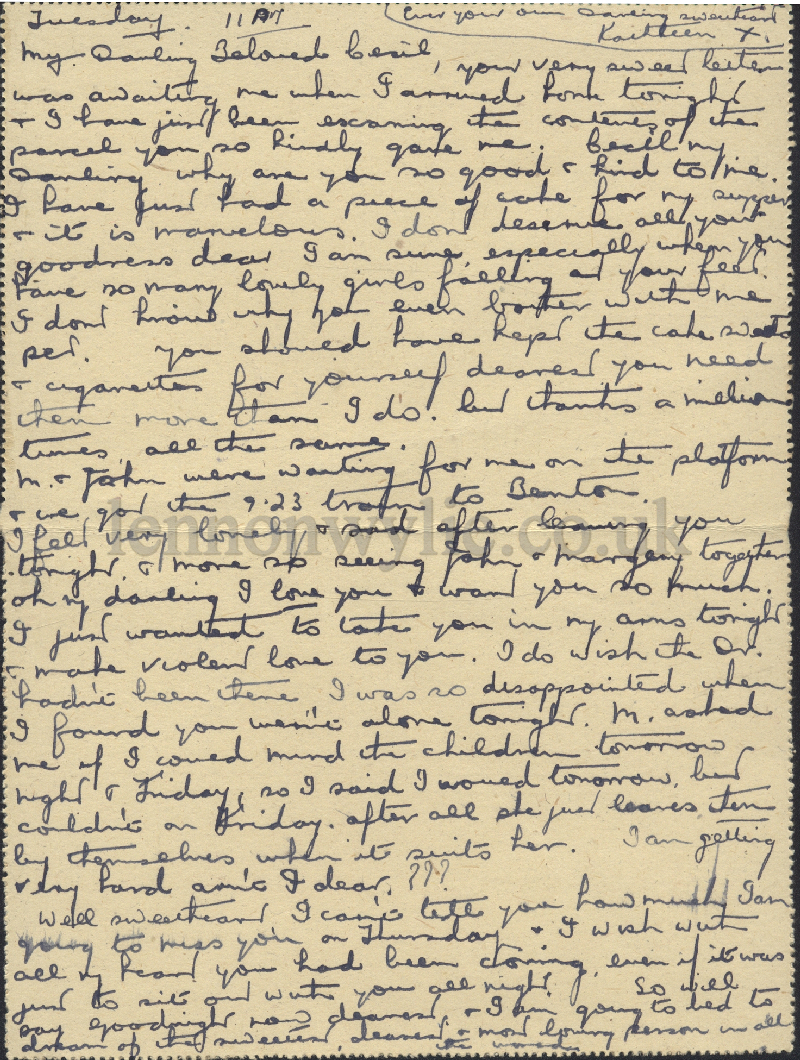 Tuesday. 11 PM
(Ever your own Darling sweetheart
Kaithleen X.
My Darling Beloved Cecil
, your very sweet letter
was awaiting me when I arrived home tonight
& I have just been examing the contents of the
parcel you so kindly gave me. Cecil my
Darling why are you so good & kind to me.
I have just had a piece of cake for my supper
& it is marvelous. I dont deserve all your
goodness dear I am sure, especially when you
have so many lovely girls falling at your feet.
I dont know why you even bother with me
pet. You should have kept the cake sweets
& cigarettes for yourself dearest you need
them more than I do. but thanks a million
times, all the same.
M. & John were waiting for me on the platform
& we got the 9.23 train to Benton.
I felt very lonely & sad after leaving you
tonight, & more so seeing John & Margery together
oh my darling I love you & want you so much.
I just wanted to take you in my arms tonight
& make violent love to you. I do wish the Dr.
hadn't been there I was so disappointed when
I found you wern't alone tonight. M. asked
me if I coued mind the children tomorrow
night & Friday, so I said I woued tomorrow, but
couldn't on Friday. after all she just leaves them
by themselves when it suits her. I am getting
very hard arn't I dear, ???
Well sweetheart I can't tell you how much I am
going to miss you on Thursday & I wish with
all my heart you had been coming, even if it was
just to sit out with you all night. So will
say goodnight now dearest, & I am going to bed to
dream of the sweetest, dearest & most loving person in all
the world
lennonwylie.co.uk